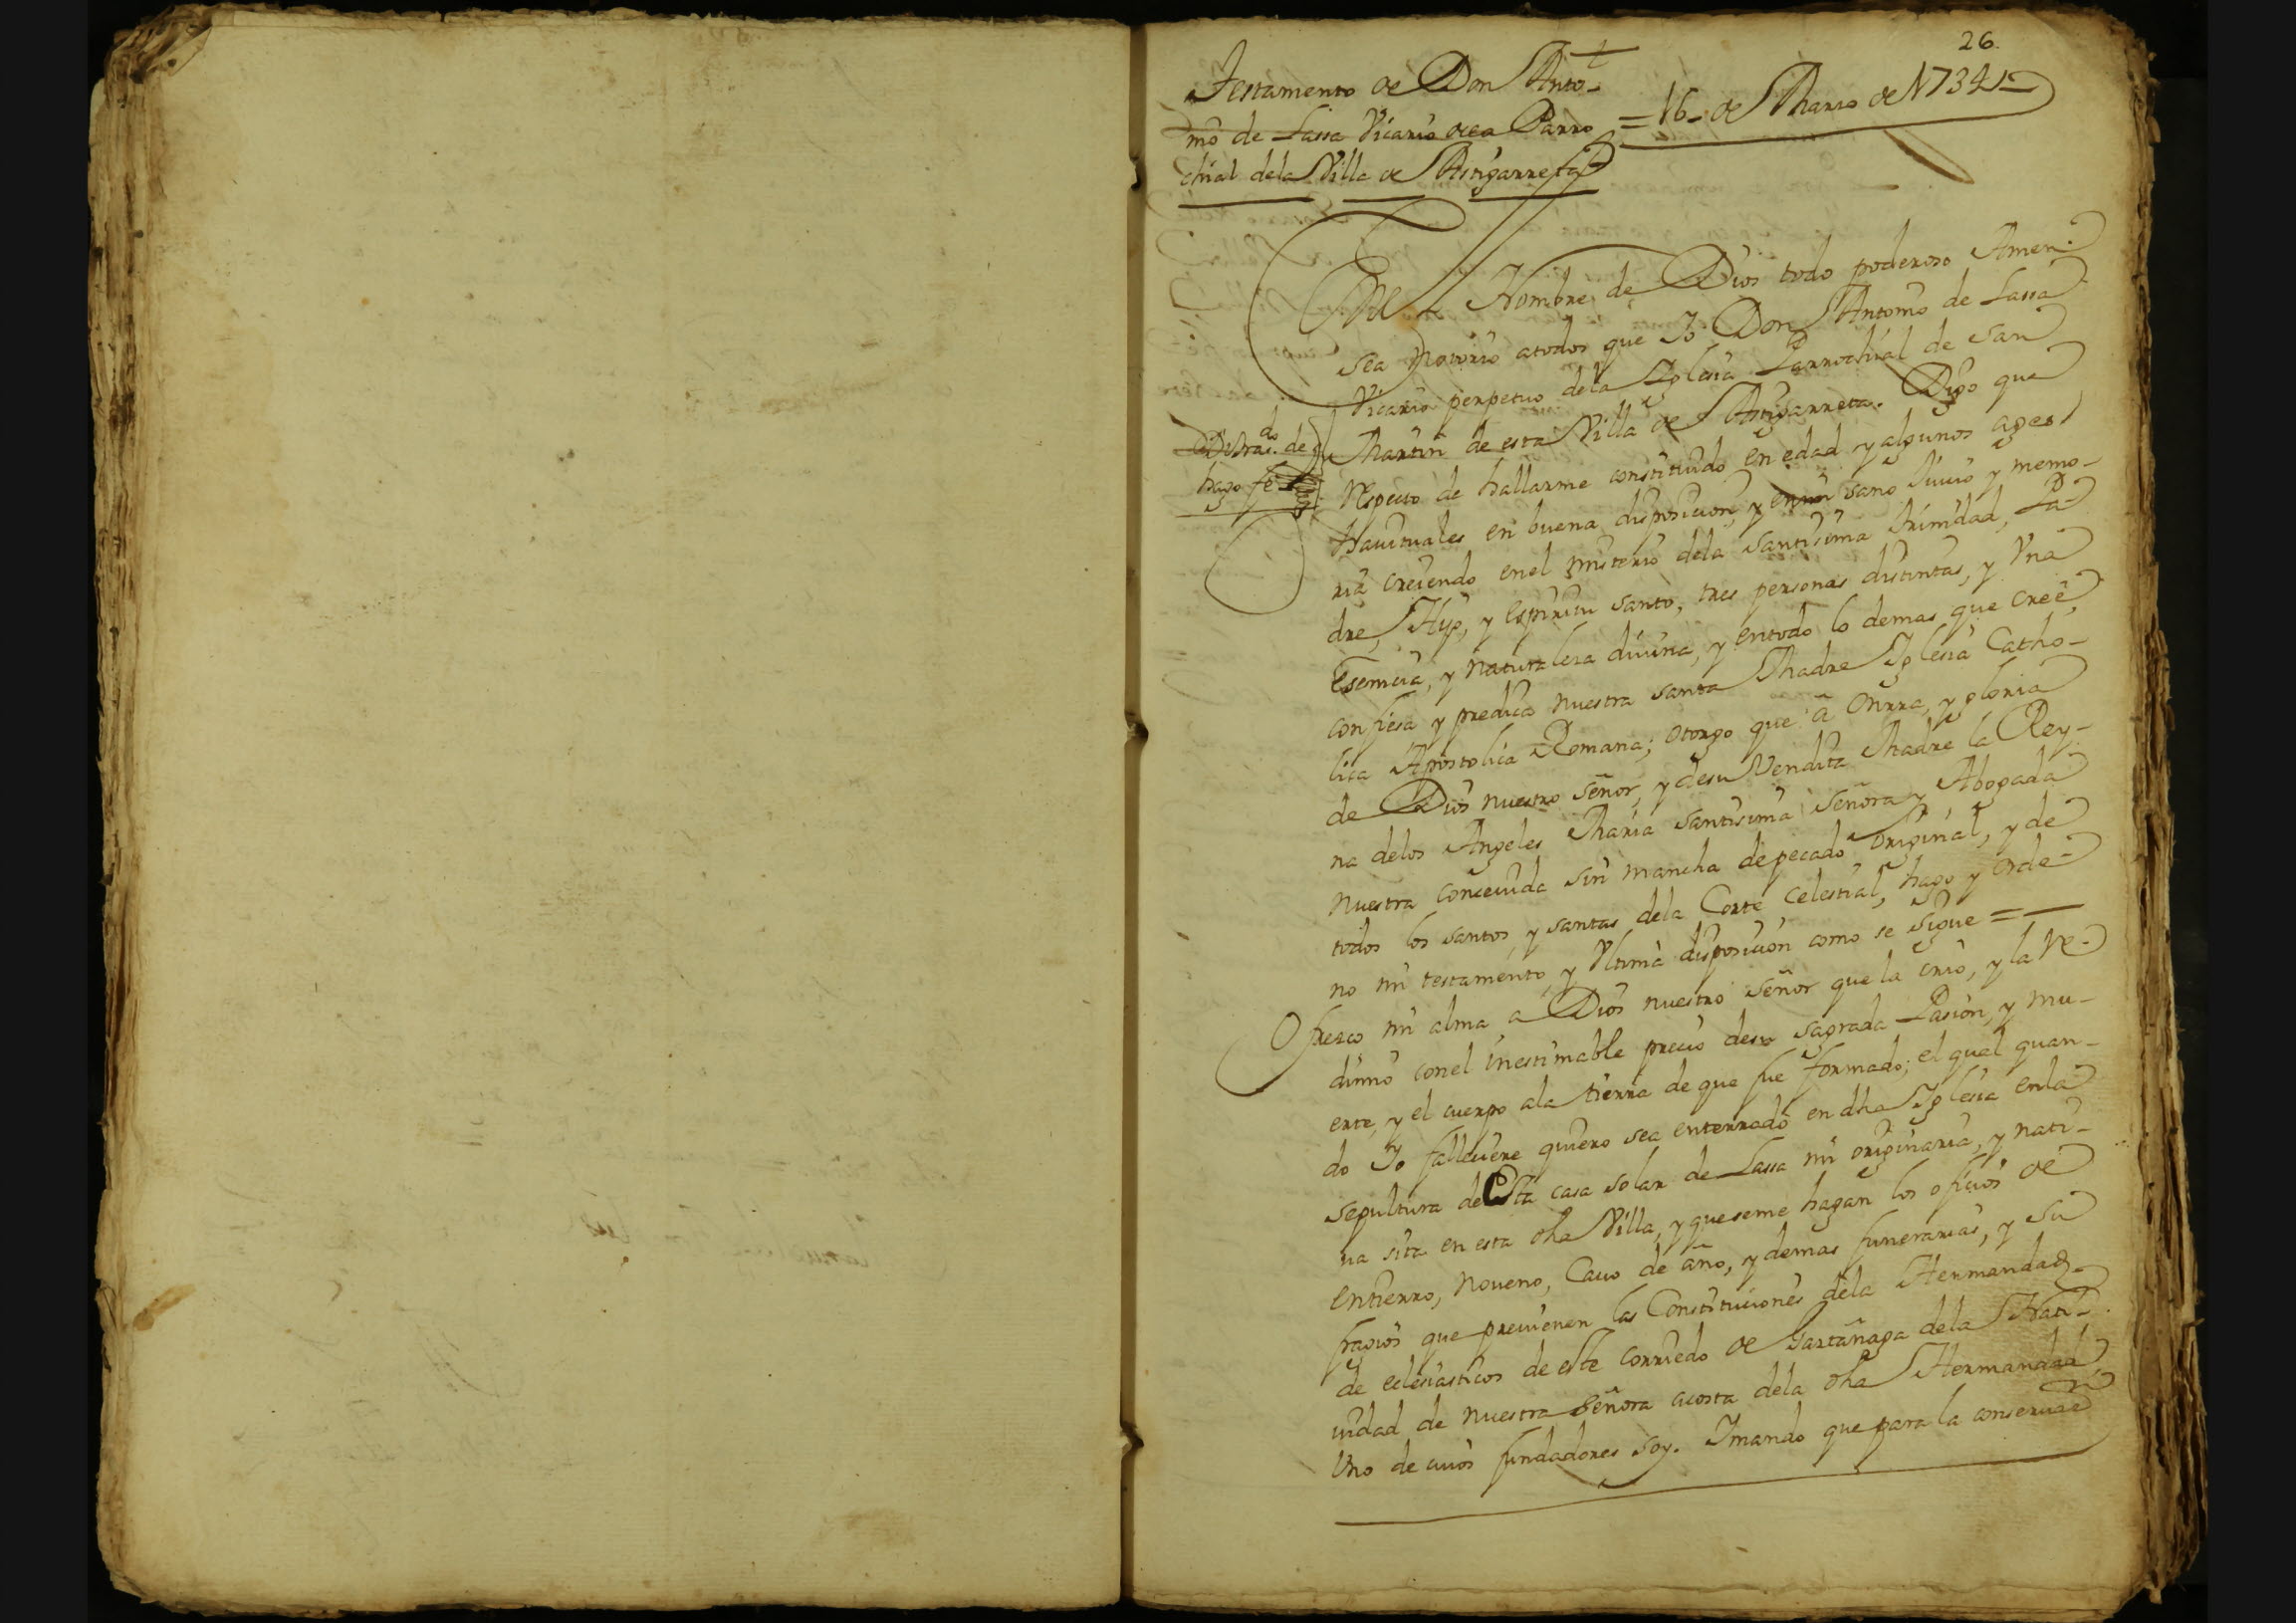 26.
Testamento de Don Anto-
nio de Lassa Vicario de la Parro
chial dela Villa de Astigarreta
= 16. de Marzo de 1734
En el Nombre de Dios todo poderoso Amen.
sea notorio atodos que Yo Don Antonio de Lassa
Vicario perpetuo dela Yglesia Parrochial de San
Martin de esta Villa de Astigarreta. Digo que
respecto de hallarme constituido en edad y algunos ages
havituales en buena disposicion, y en mi sano Juicio y memo-
ria creiendo enel misterio dela santisima trinidad, Pa-
dre, Hijo, y espiritu santo, tres personas distintas, y Vna
Esencia, y naturalesa diuina, y entodo lo demas que creê,
confiesa y predica nuestra santa Madre Yglesia Catho-
lica Apostolica Romana; otorgo que â onrra, y gloria
de Dios nuestro señor, y desu Vendita Madre la Rey-
na delos Angeles Maria santisima señora y Abogada
nuestra conceuida sin mancha de pecado original, y de
todos los santos, y santas dela Corte celestial, hago y orde-
no mi testamento, y Vltima disposicion como se sigue =
Ofrezco mi alma a Dios nuestro señor que la crio, y la re-
dimio conel inestimable precio desu sagrada Pasion, y mu-
erte, y el cuerpo ala tierra de que fue formado; el qual quan-
do Yo falleciere quiero sea enterrado en dha Yglesia enla
sepultura de esta casa solar de Lassa mi originaria, y nati-
ua sita en esta dha Villa, y queseme hagan los oficios de
entierro, Noueno, Cauo de año, y demas funerarias, y su
fragios que preuienen las Constituciones dela Hermandad
de eclesiasticos de este corriedo de Gartañaga dela Nati-
uidad de nuestra señora acosta dela dha Hermandad
Vno de cuios fundadores soy. Y mando que para la conseruaon
do
de
hago fe